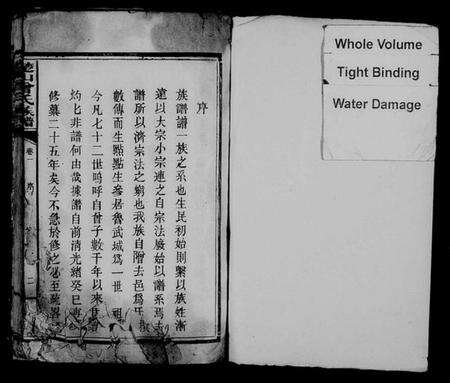 序
族譜譜一族之系也生民初始則繫以族姓漸
遠以大宗小宗連之自宗法廢始以譜系焉
譜所以濟宗法之窮也我族自鄫去邑爲
數傳而生點點生參居魯武城爲一世祖
今凡七十二世嗚呼自曾子數千年以來
灼七非譜何由哉據譜自前清光緒癸巳
修纂二十五年矣今不急於修之
卷一
序
Whole Volume
Tight Binding
Water Damage